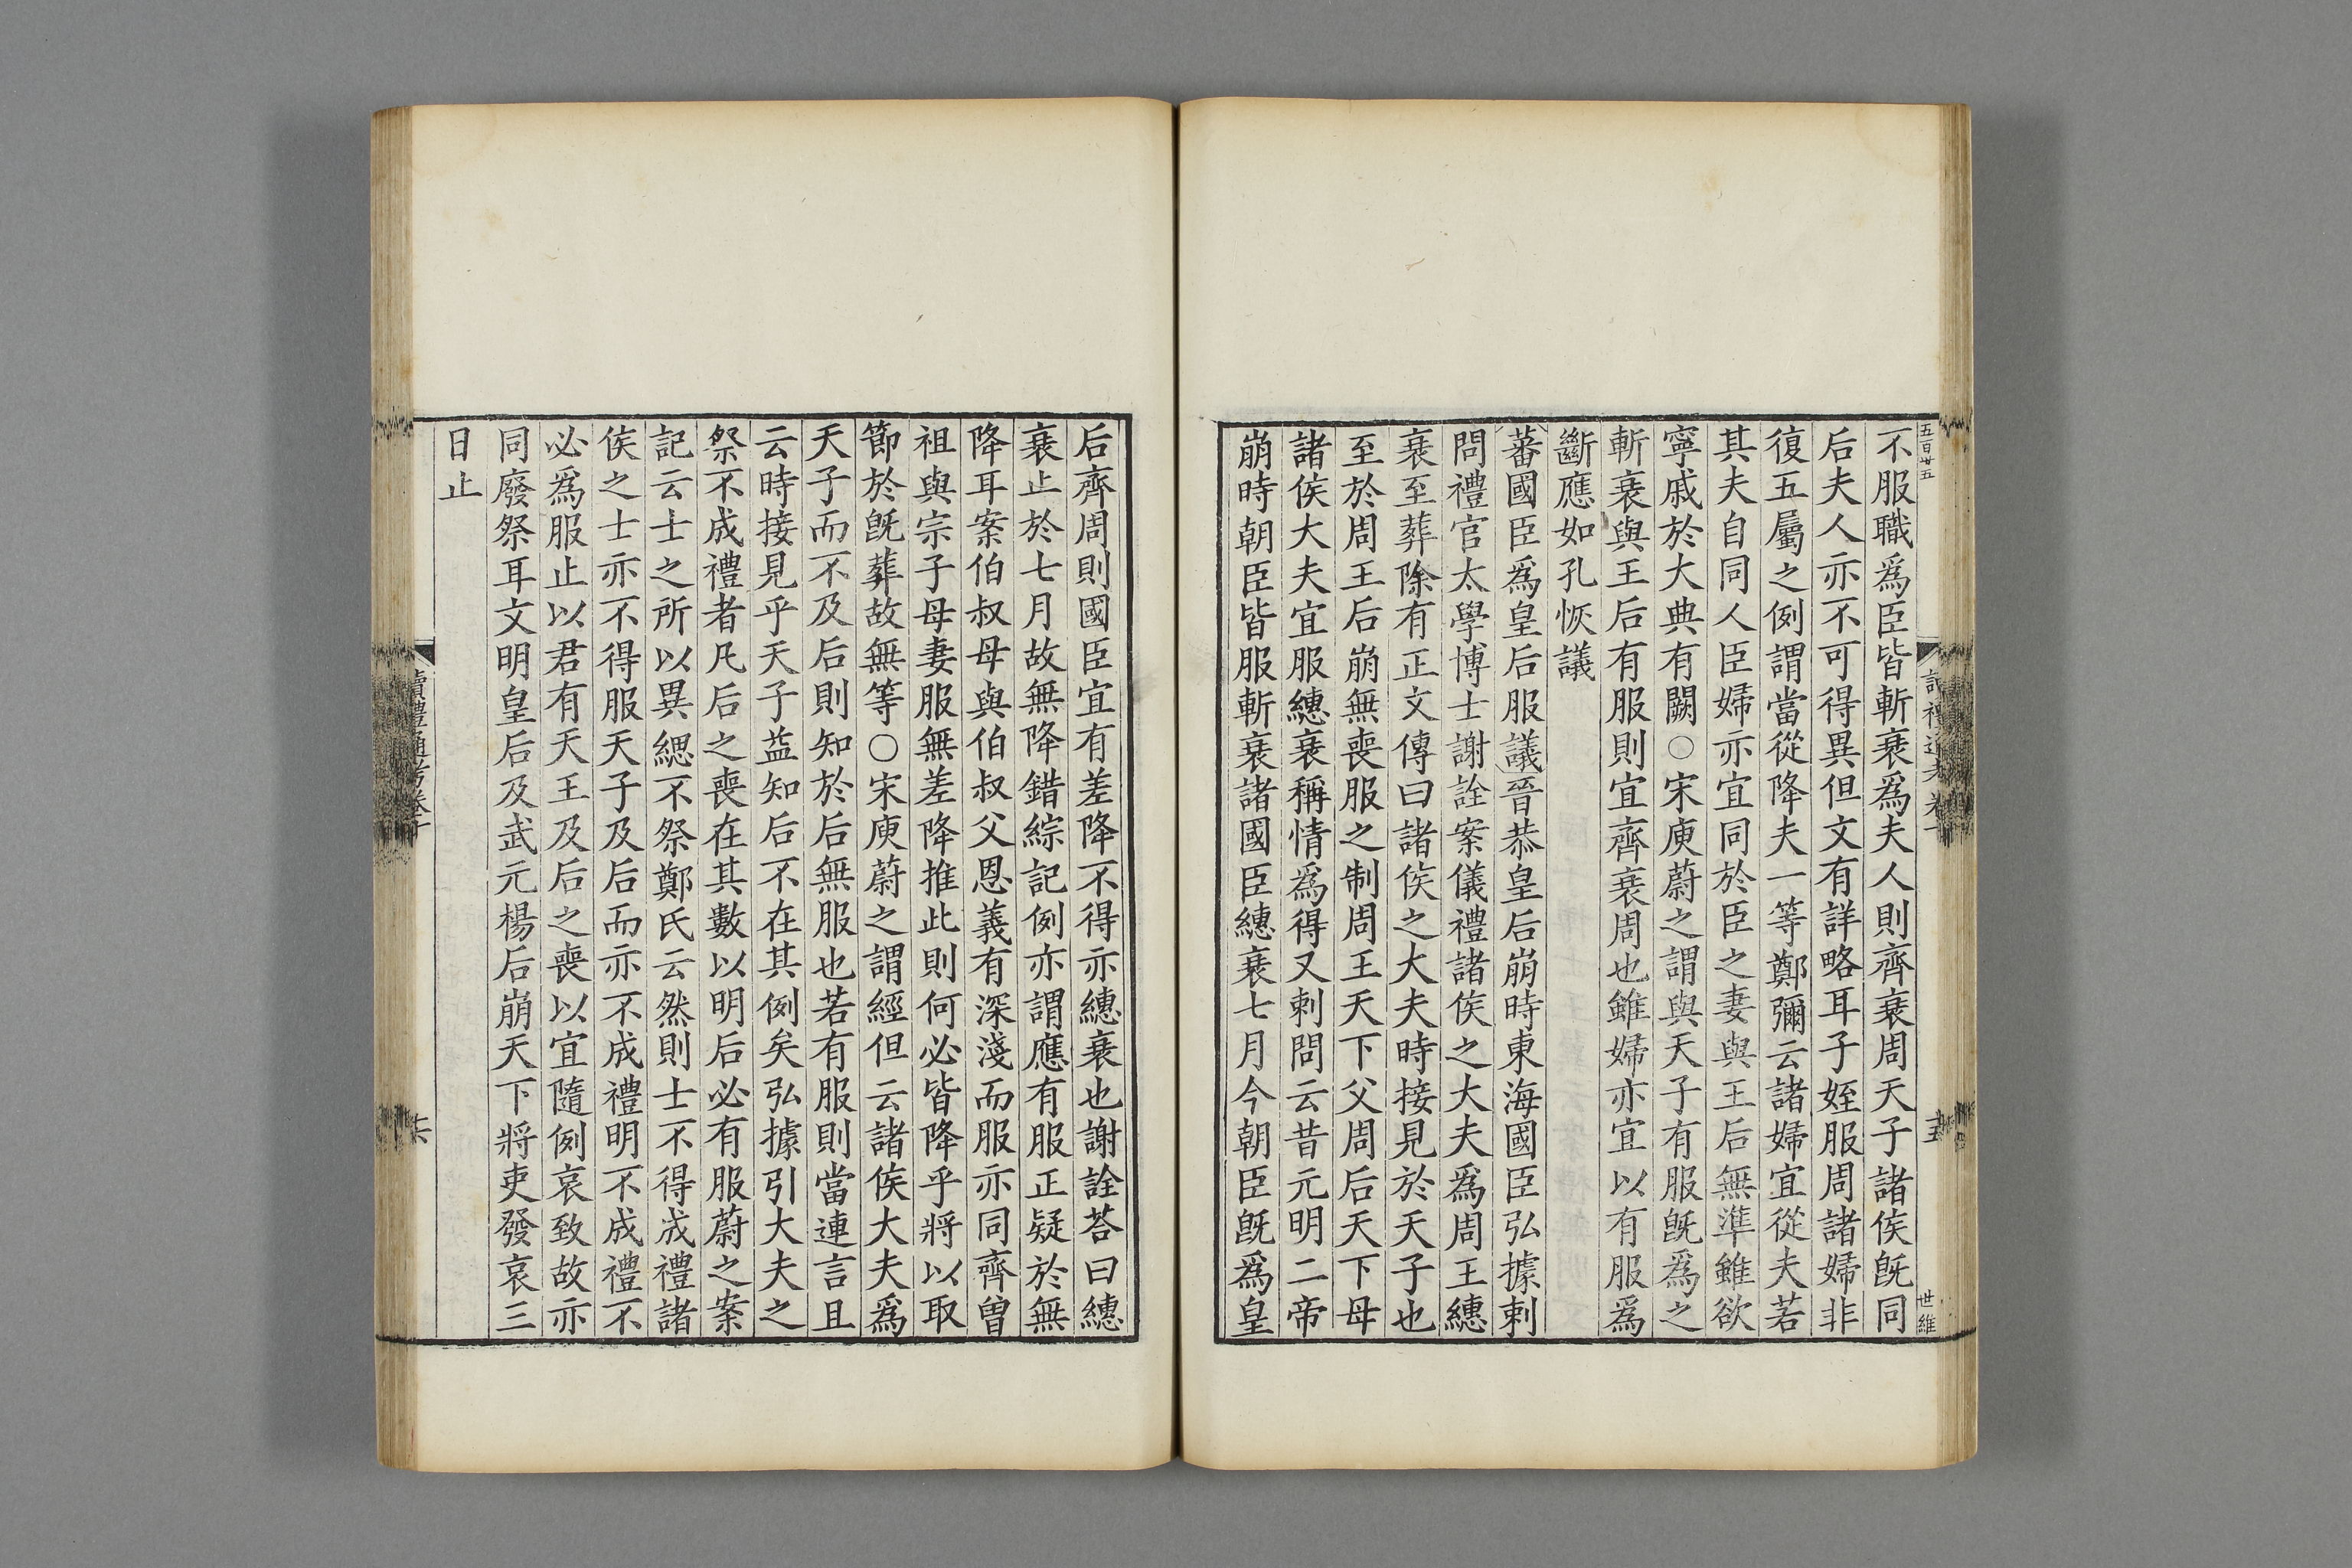 五百卅五
不服職爲臣皆斬衰爲夫人則齊衰周天子諸侯旣同
后夫人亦不可得異但文有詳略耳子姪服周諸婦非
復五屬之例謂當從降夫一等鄭彌云諸婦宜從夫若
其夫自同人臣婦亦宜同於臣之妻與王后無準雖欲
寧戚於大典有闕○宋庾蔚之謂與天子有服旣爲之
斬衰與王后有服則宜齊衰周也雖婦亦宜以有服爲
斷應如孔恢議
蕃國臣爲皇后服議晉恭皇后崩時東海國臣弘據刺
問禮官太學博士謝詮案儀禮諸侯之大夫爲周王繐
衰至葬除有正文傳曰諸侯之大夫時接見於天子也
至於周王后崩無喪服之制周王天下父周后天下母
諸侯大夫宜服繐衰稱情爲得又刺問云昔元明二帝
崩時朝臣皆服斬衰諸國臣繐衰七月今朝臣旣爲皇
世維
后齊周則國臣宜有差降不得亦繐衰也謝詮荅曰繐
衰止於七月故無降錯綜記例亦謂應有服正疑於無
降耳案伯叔母與伯叔父恩義有深淺而服亦同齊曾
祖與宗子母妻服無差降推此則何必皆降乎將以取
節於旣葬故無等○宋庾蔚之謂經但云諸侯大夫爲
天子而不及后則知於后無服也若有服則當連言且
云時接見乎天子葢知后不在其例矣弘據引大夫之
祭不成禮者凡后之喪在其數以明后必有服蔚之案
記云士之所以異緦不祭鄭氏云然則士不得成禮諸
侯之士亦不得服天子及后而亦不成禮明不成禮不
必爲服止以君有天王及后之喪以宜隨例哀致故亦
同廢祭耳文明皇后及武元楊后崩天下將吏發哀三
日止
讀禮通考卷十